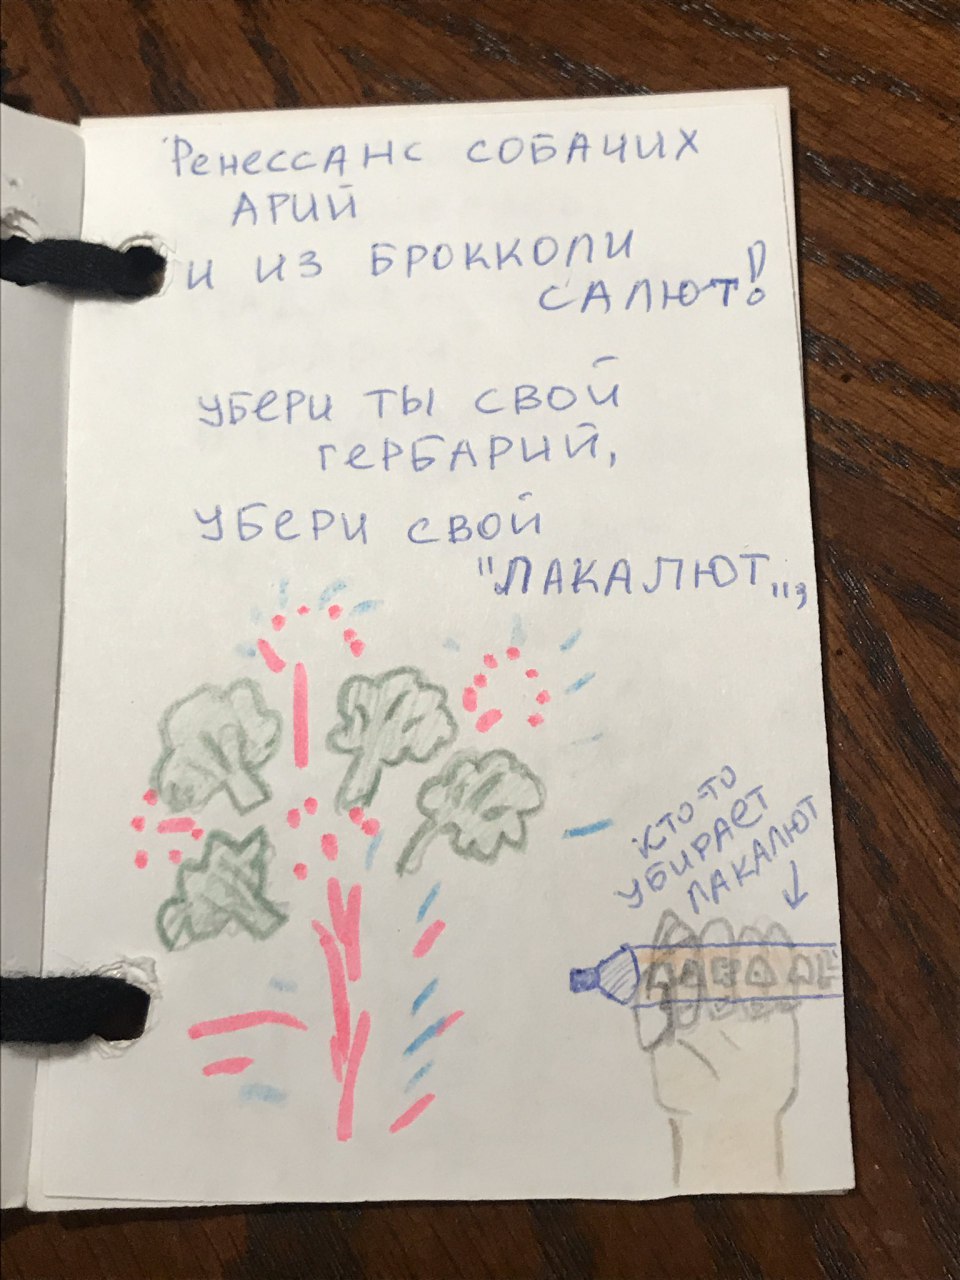 Ренессанс собачих
арий
и из брокколи
салют!
убери ты свой
гербарий,
убери свой
"Лакалют",
кто-то
убирает
лакалют